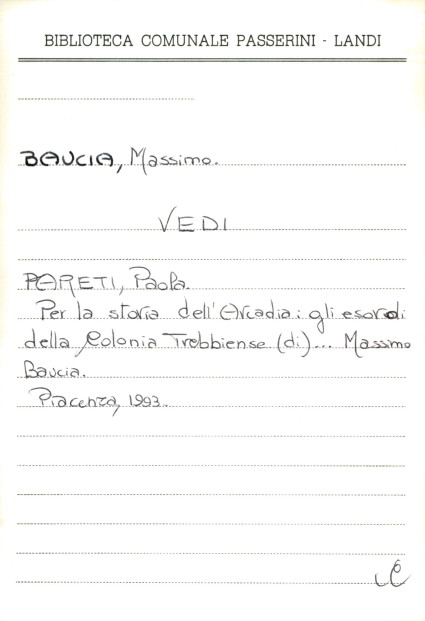 BIBLIOTECA COMUNALE PASSERINI - LANDI
BAUCIA, Massimo.
VEDI
PARETI, Paola.
Per la storia dell'Arcadia: gli esordi
della Colonia Trebbiense (di)... Massimo
Baucia.
Piacenza, 1993.